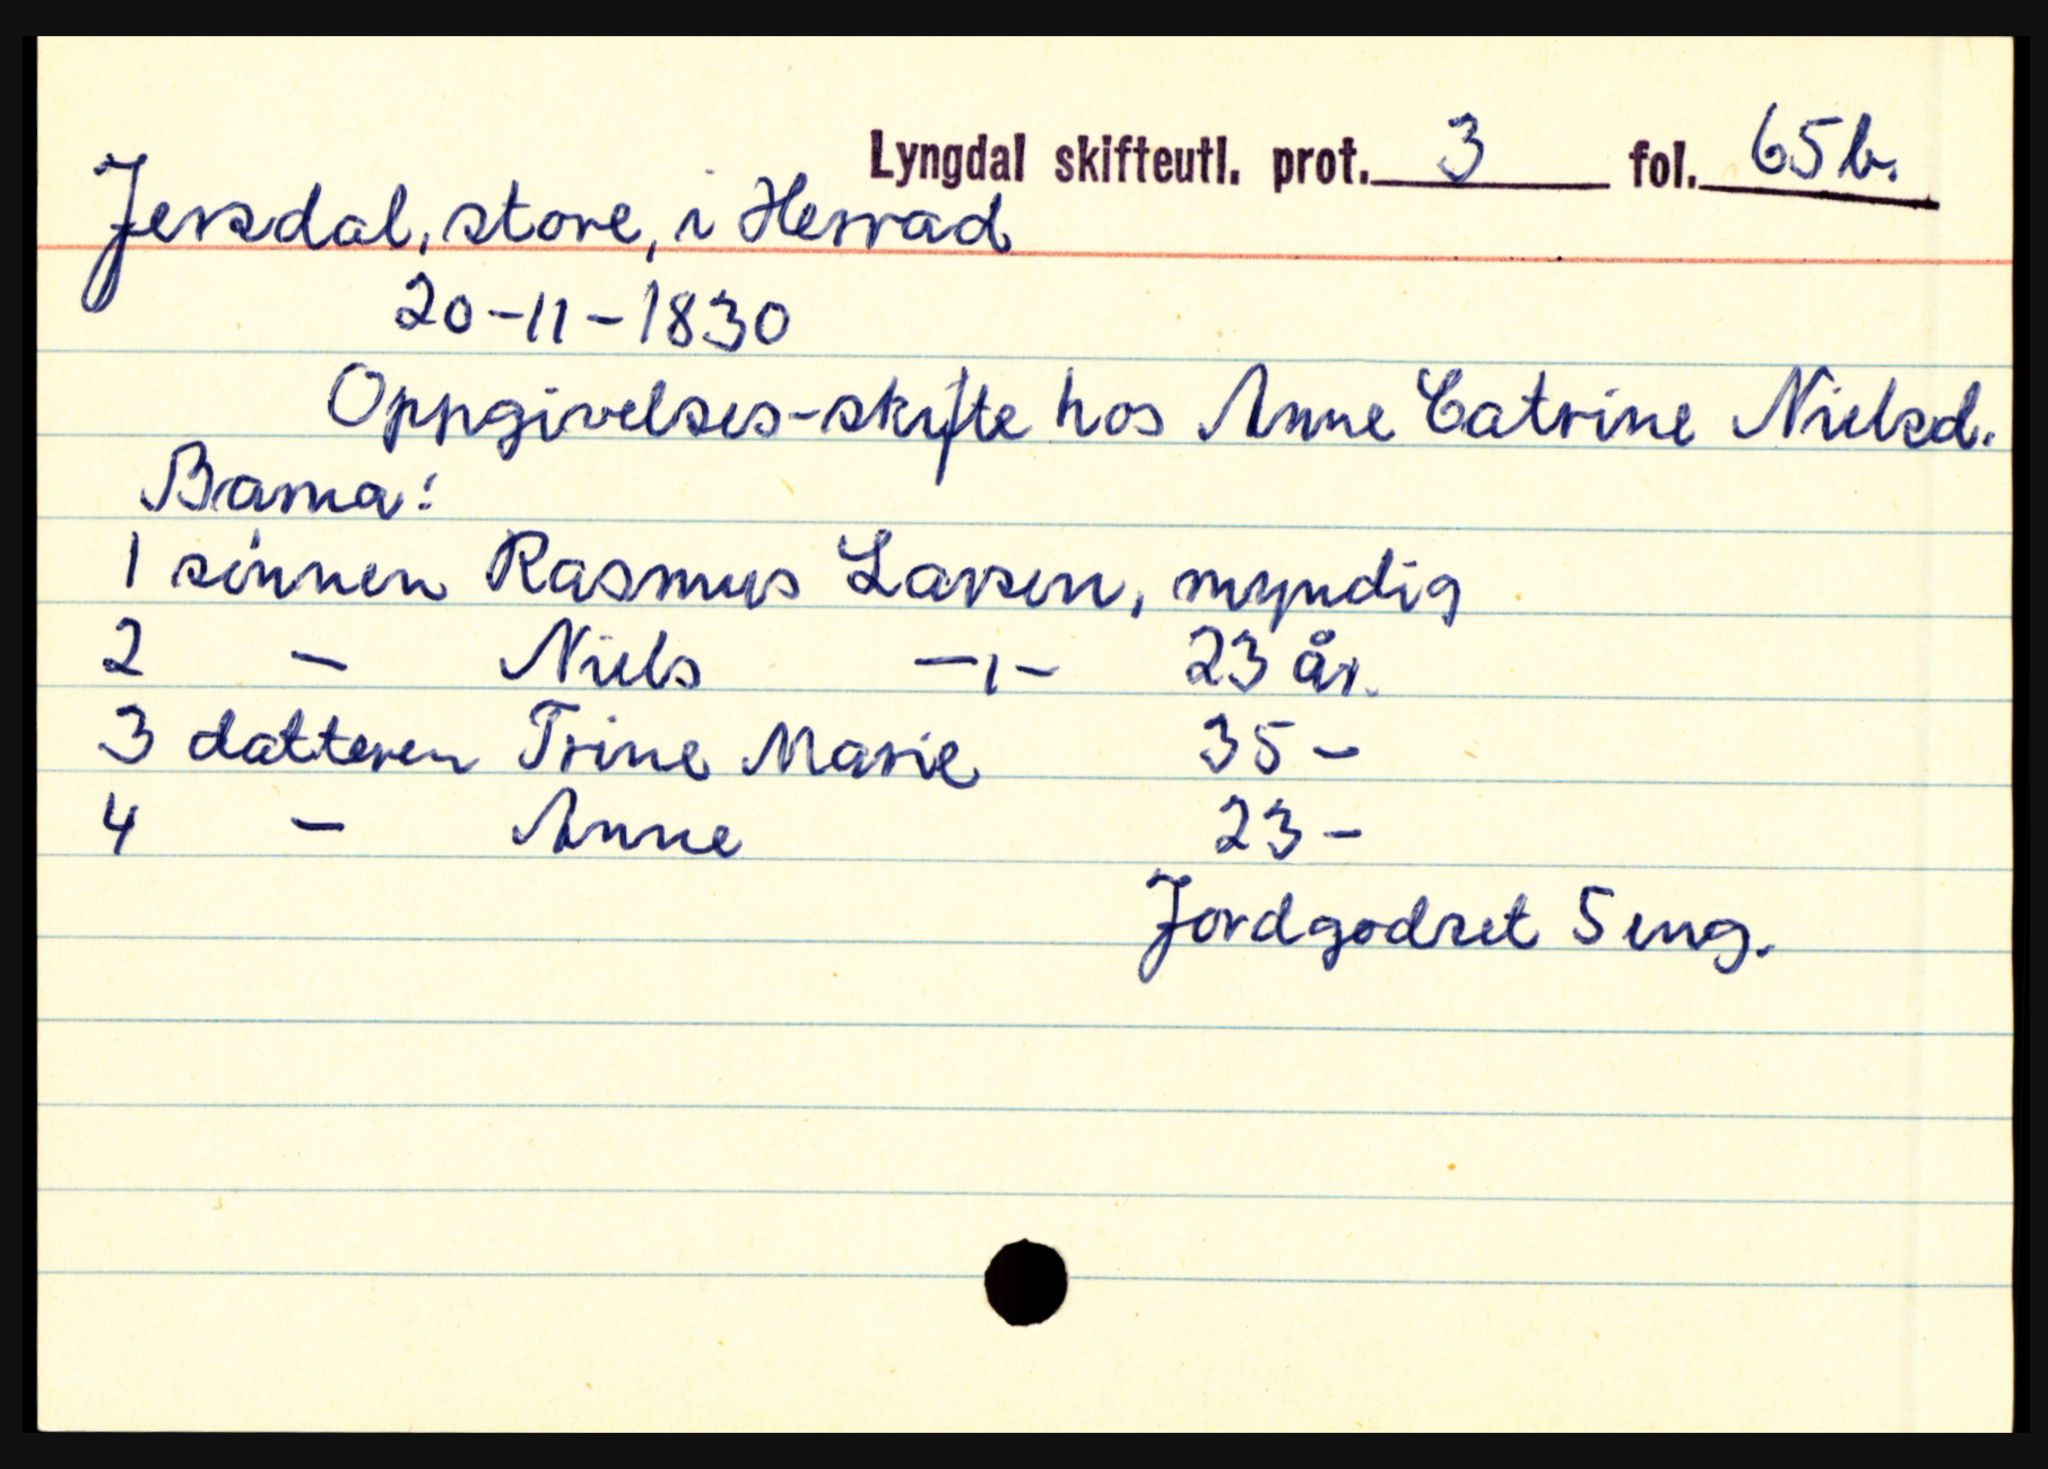 Lyngdal skifteutl. prot. 3 fol. 65b.
Jersdal, store, i Herrad
20-11-1830
Oppgivelses-skifte hos Anne Catrine Nielsd.
Barna:
1 sønnen Rasmus Larsen, myndig
2 - Niels -"- 23 år.
3 datteren Trine Marie 35 -
4 - Anne 23 -
Jordgodset 5 eng.